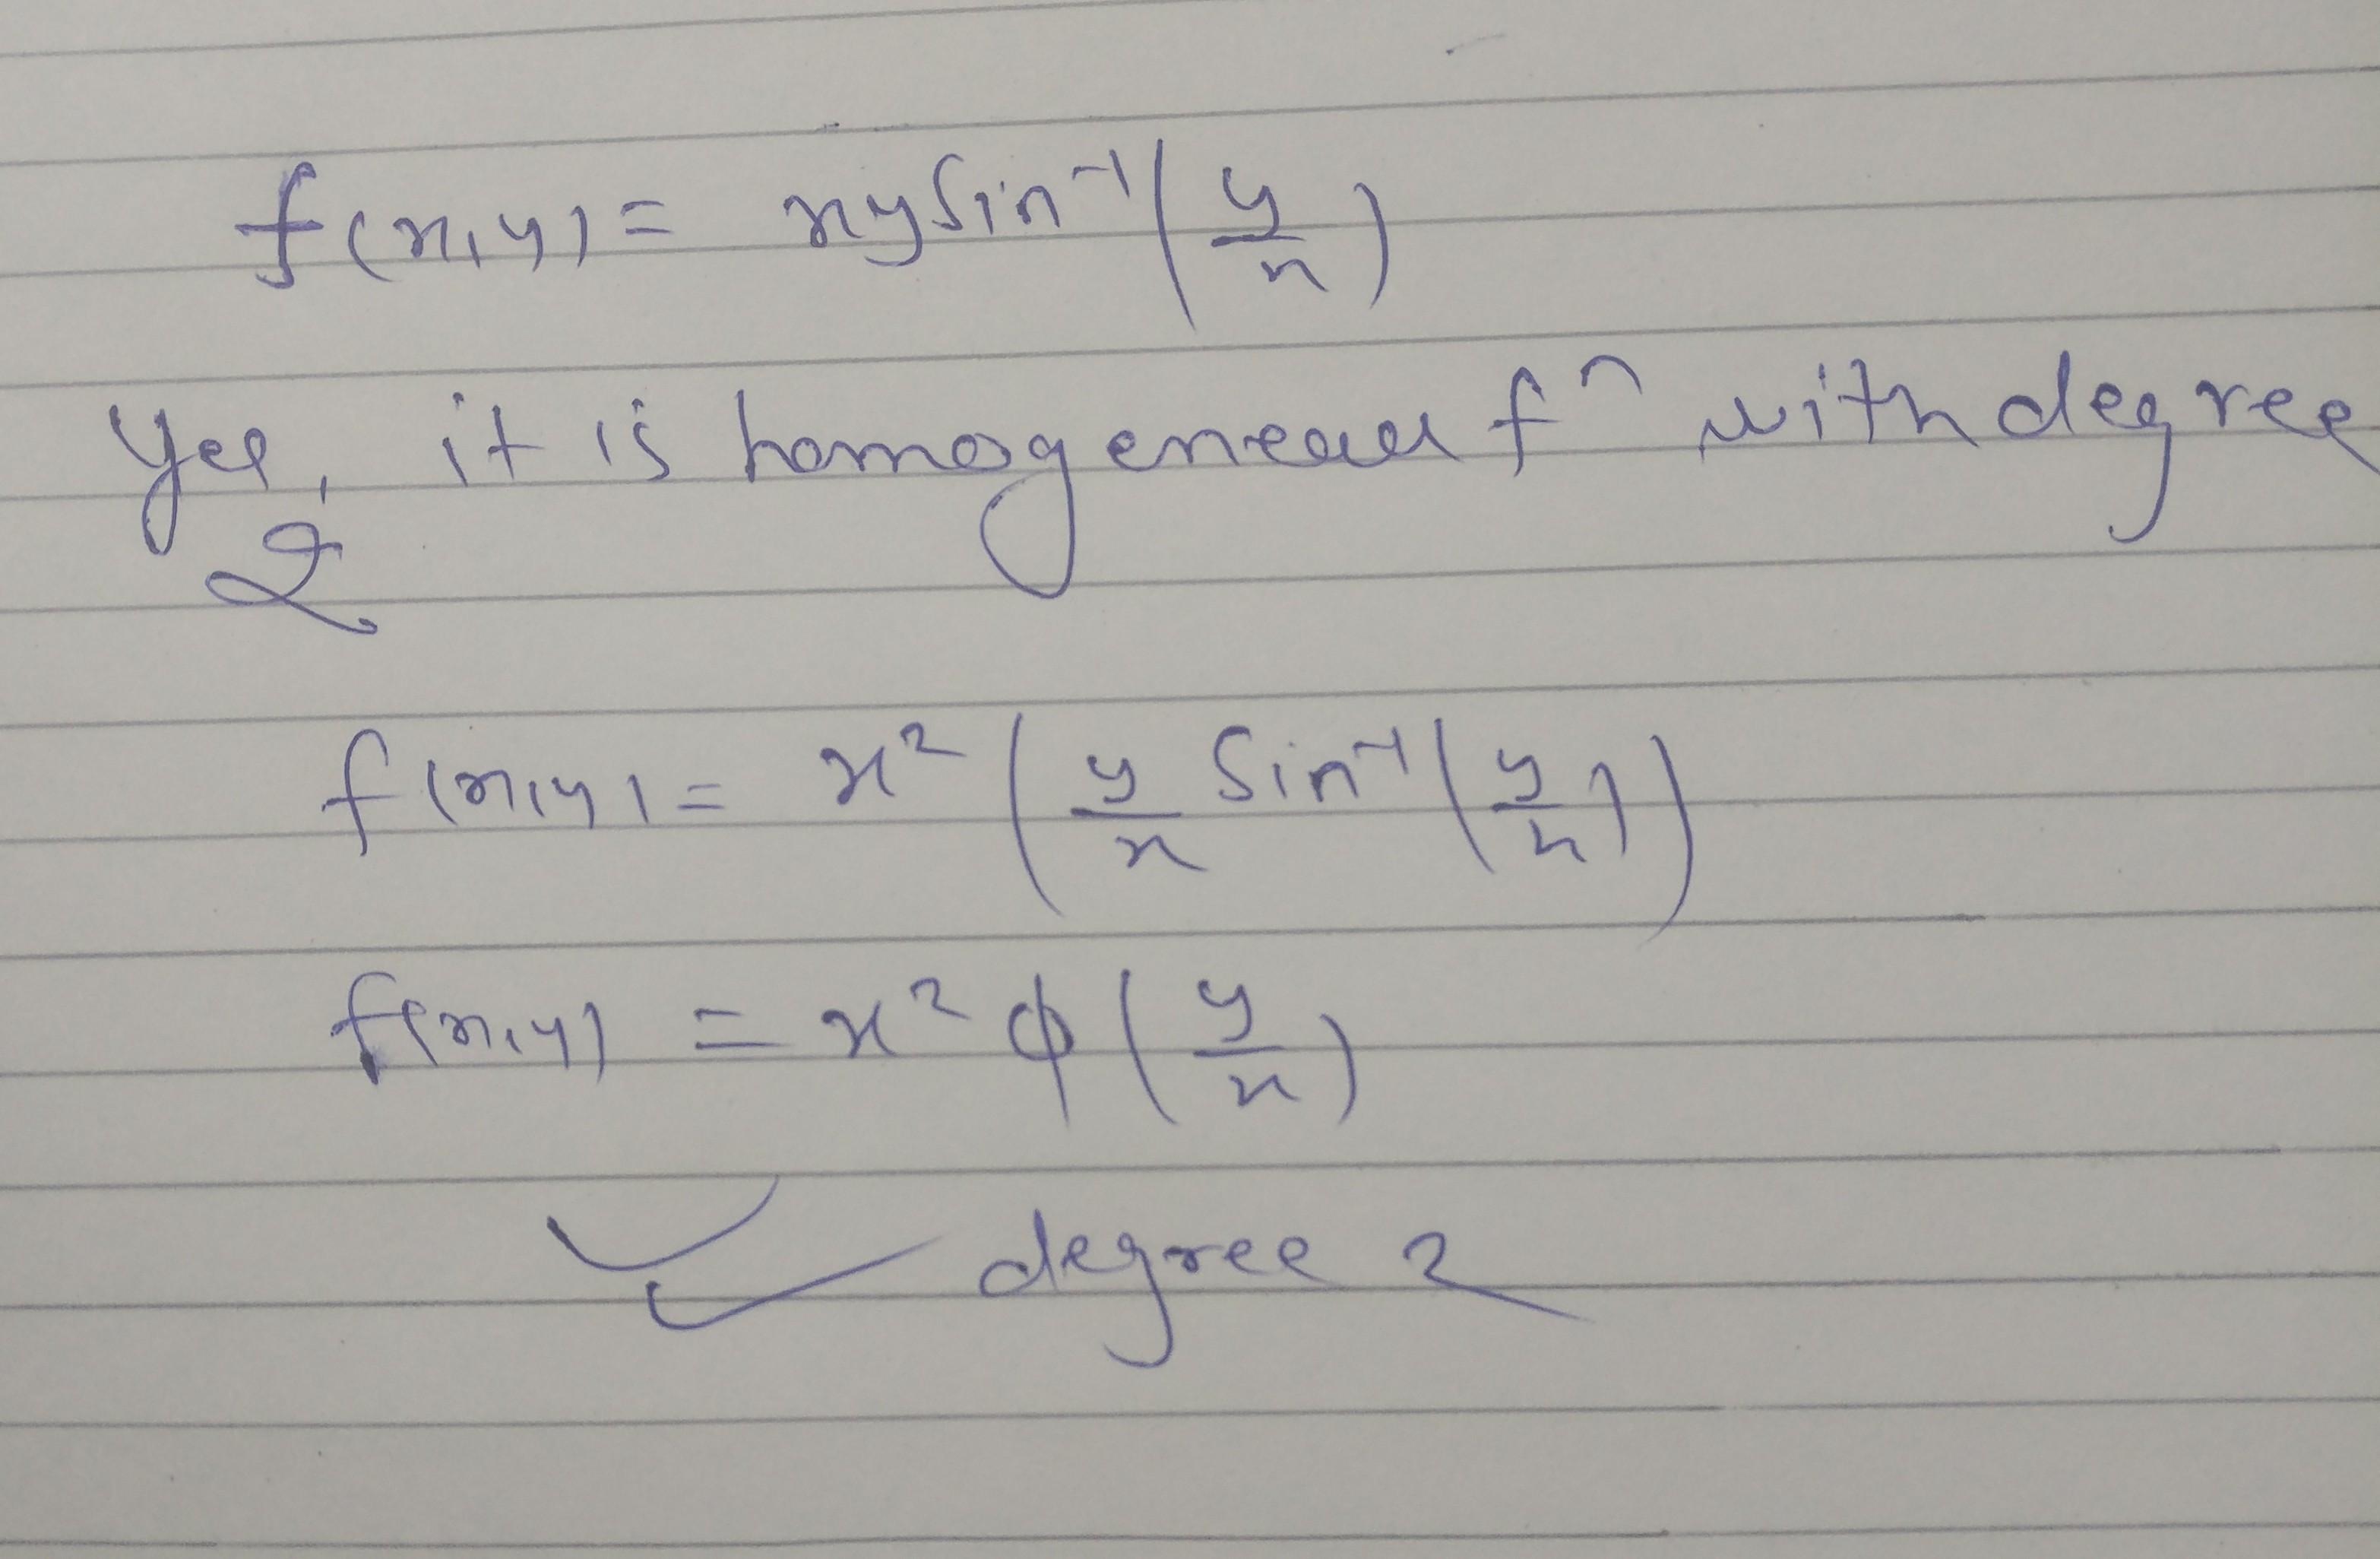 f(x,y) = xy sin⁻¹(y/x)
Yes, it is homogeneous fⁿ with degree
2
f(x,y) = x²(y/x sin⁻¹(y/x))
f(x,y) = x² ϕ(y/x)
degree 2